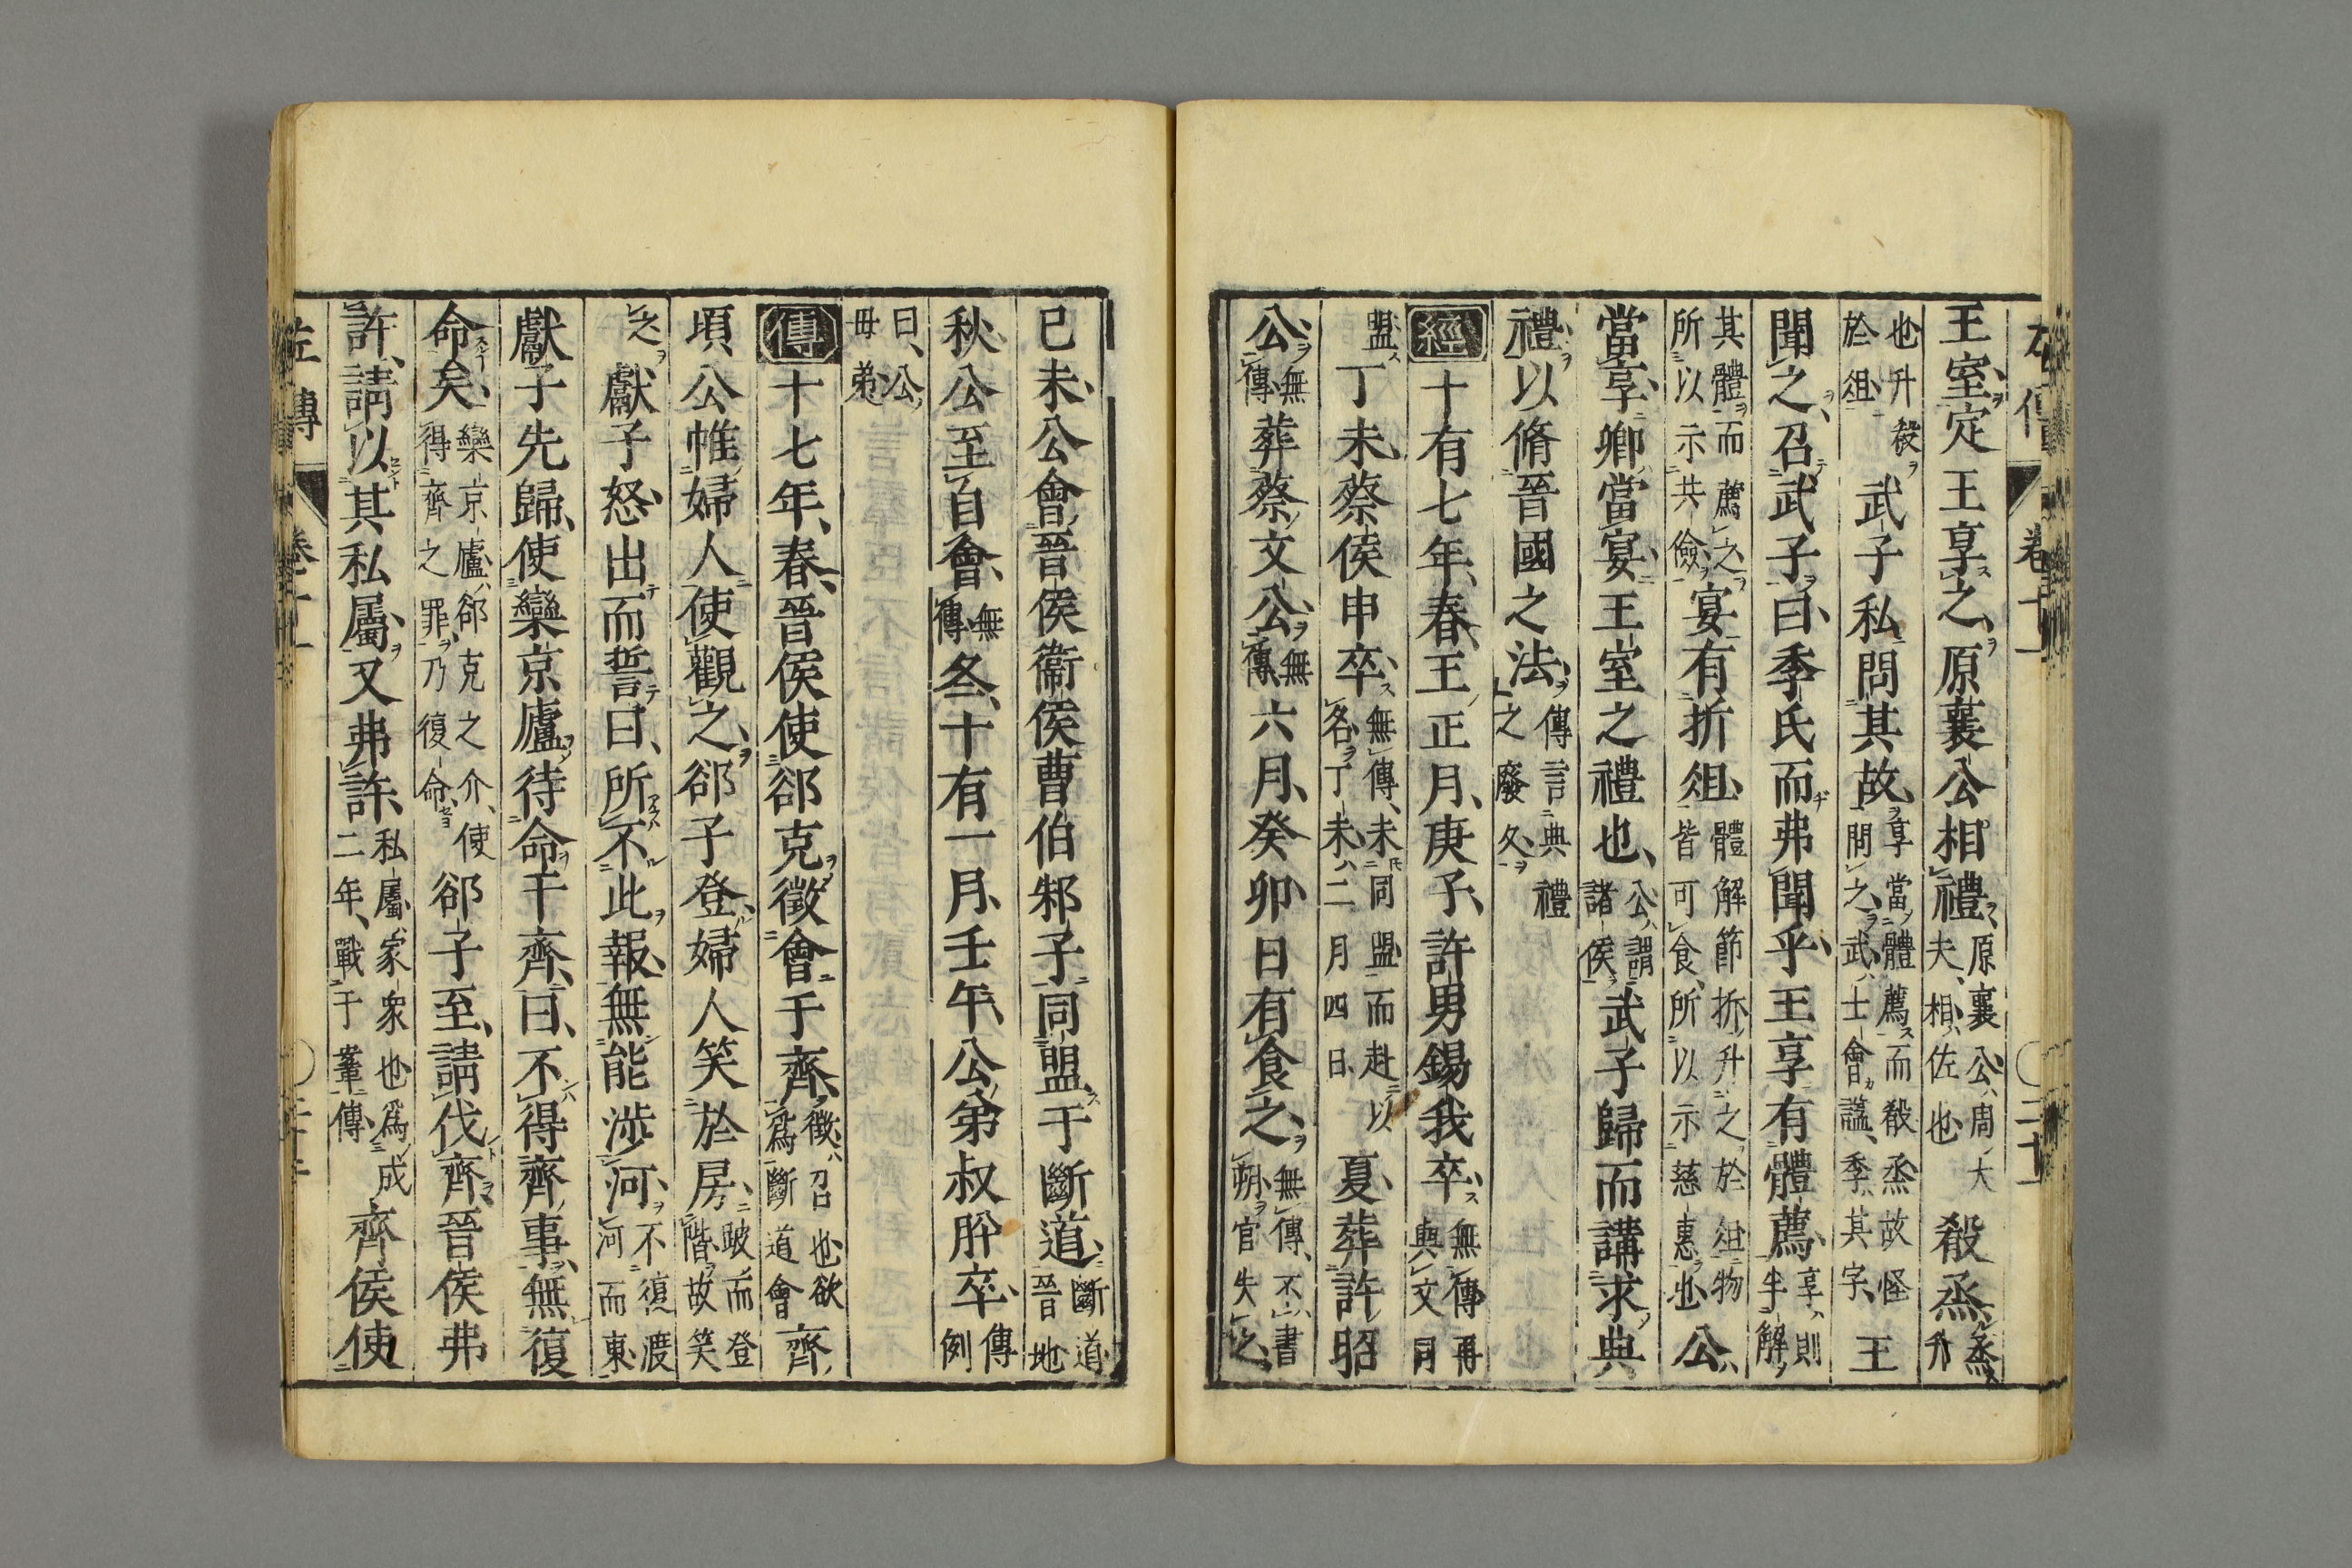 左傳 卷十一 〇二十
王室定王享之原襄公相禮原襄公周大夫相佐也殽烝烝升
也升殽於俎武子私問其故享當體薦而殽烝故怪問之武士會謚季其字王
聞之召武子曰季氏而弗聞乎王享有體薦享則半解
其體而薦之所以示共儉宴有折俎體解節折升之於俎物皆可食所以示慈惠也公
當享卿當宴王室之禮也公謂諸侯武子歸而講求典
禮以脩晉國之法傳言典禮之廢久
經十有七年春王正月庚子許男錫我卒無傳再與文同
盟丁未蔡侯申卒無傳未同盟而赴以名丁未二月四日夏葬許昭
公無傳葬蔡文公無傳六月癸卯日有食之無傳不書朔官失之
己未公會晉侯衞侯曹伯邾子同盟于斷道斷道晉地
秋公至自會無傳冬十有一月壬午公弟叔肸卒傳例
曰公母弟
傳十七年春晉侯使郤克徵會于齊徵召也欲爲斷道會齊
頃公帷婦人使觀之郤子登婦人笑於房跛而登階故笑
之獻子怒出而誓曰所不此報無能涉河不復渡河而東
獻子先歸使欒京廬待命于齊曰不得齊事無復
命矣欒京廬郤克之介使得齊之罪乃復命郤子至請伐齊晉侯弗
許請以其私屬又弗許私屬家衆也爲成二年戰于鞌傳齊侯使
左傳 卷十一